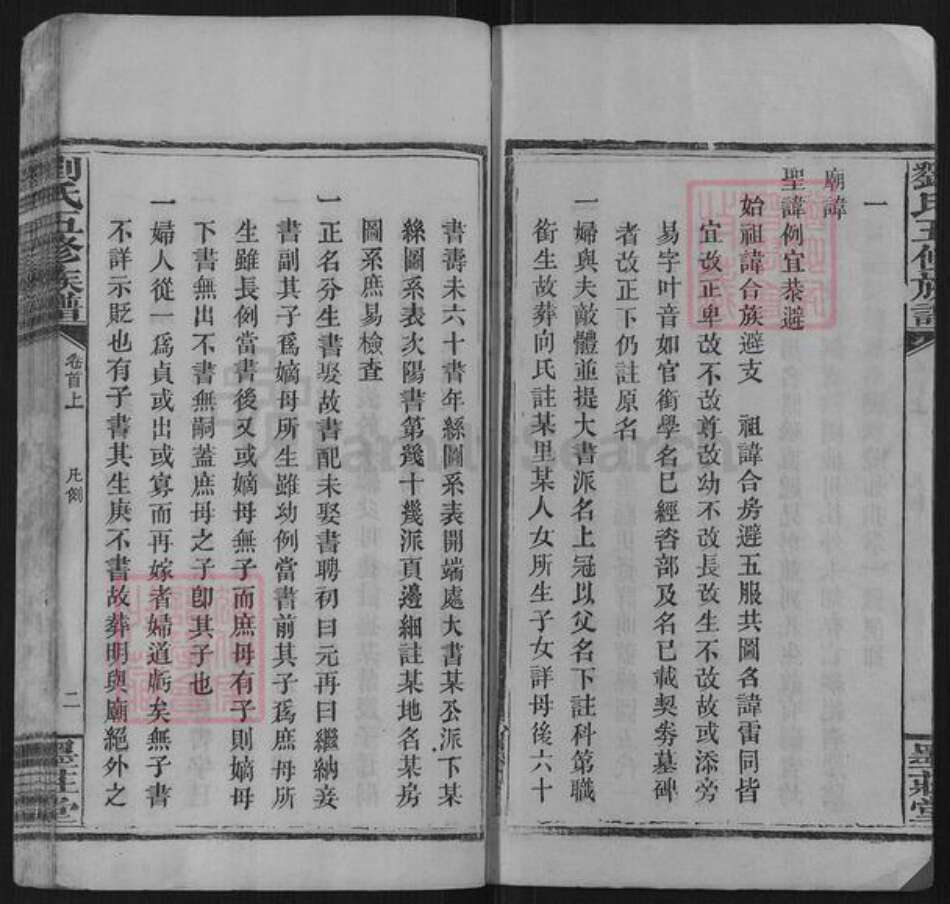 劉氏五修族譜
墨莊堂
一
廟諱
聖諱例宜恭避
始祖諱合族避支　祖諱合房避五服共圖名諱雷同皆
宜改正卑改不改尊改幼不改長改生不改故或添旁
易字叶音如官銜學名已經咨部及名已載契券墓碑
者改正下仍註原名
一婦與夫敵體並提大書派名上冠以父名下註科第職
銜生故葬向氏註某里某人女所生子女詳母後六十
書壽未六十書年絲圖系表開端處大書某公派下某
絲圖系表次陽書第幾十幾派頁邊細註某地名某房
圖系庶易檢查
一正名分生書娶故書配未娶書聘初曰元再曰繼納妾
書副其子爲嫡母所生雖幼例當書前其子爲庶母所
生雖長例當書後又或嫡母無子而庶母有子則嫡母
下書無出不書無嗣蓋庶母之子卽其子也
一婦人從一爲貞或出或寡而再嫁者婦道虧矣無子書
不詳示貶也有子書其生庚不書故葬明與廟絕外之
劉氏五修族譜
卷首上
凡例
二
墨莊堂